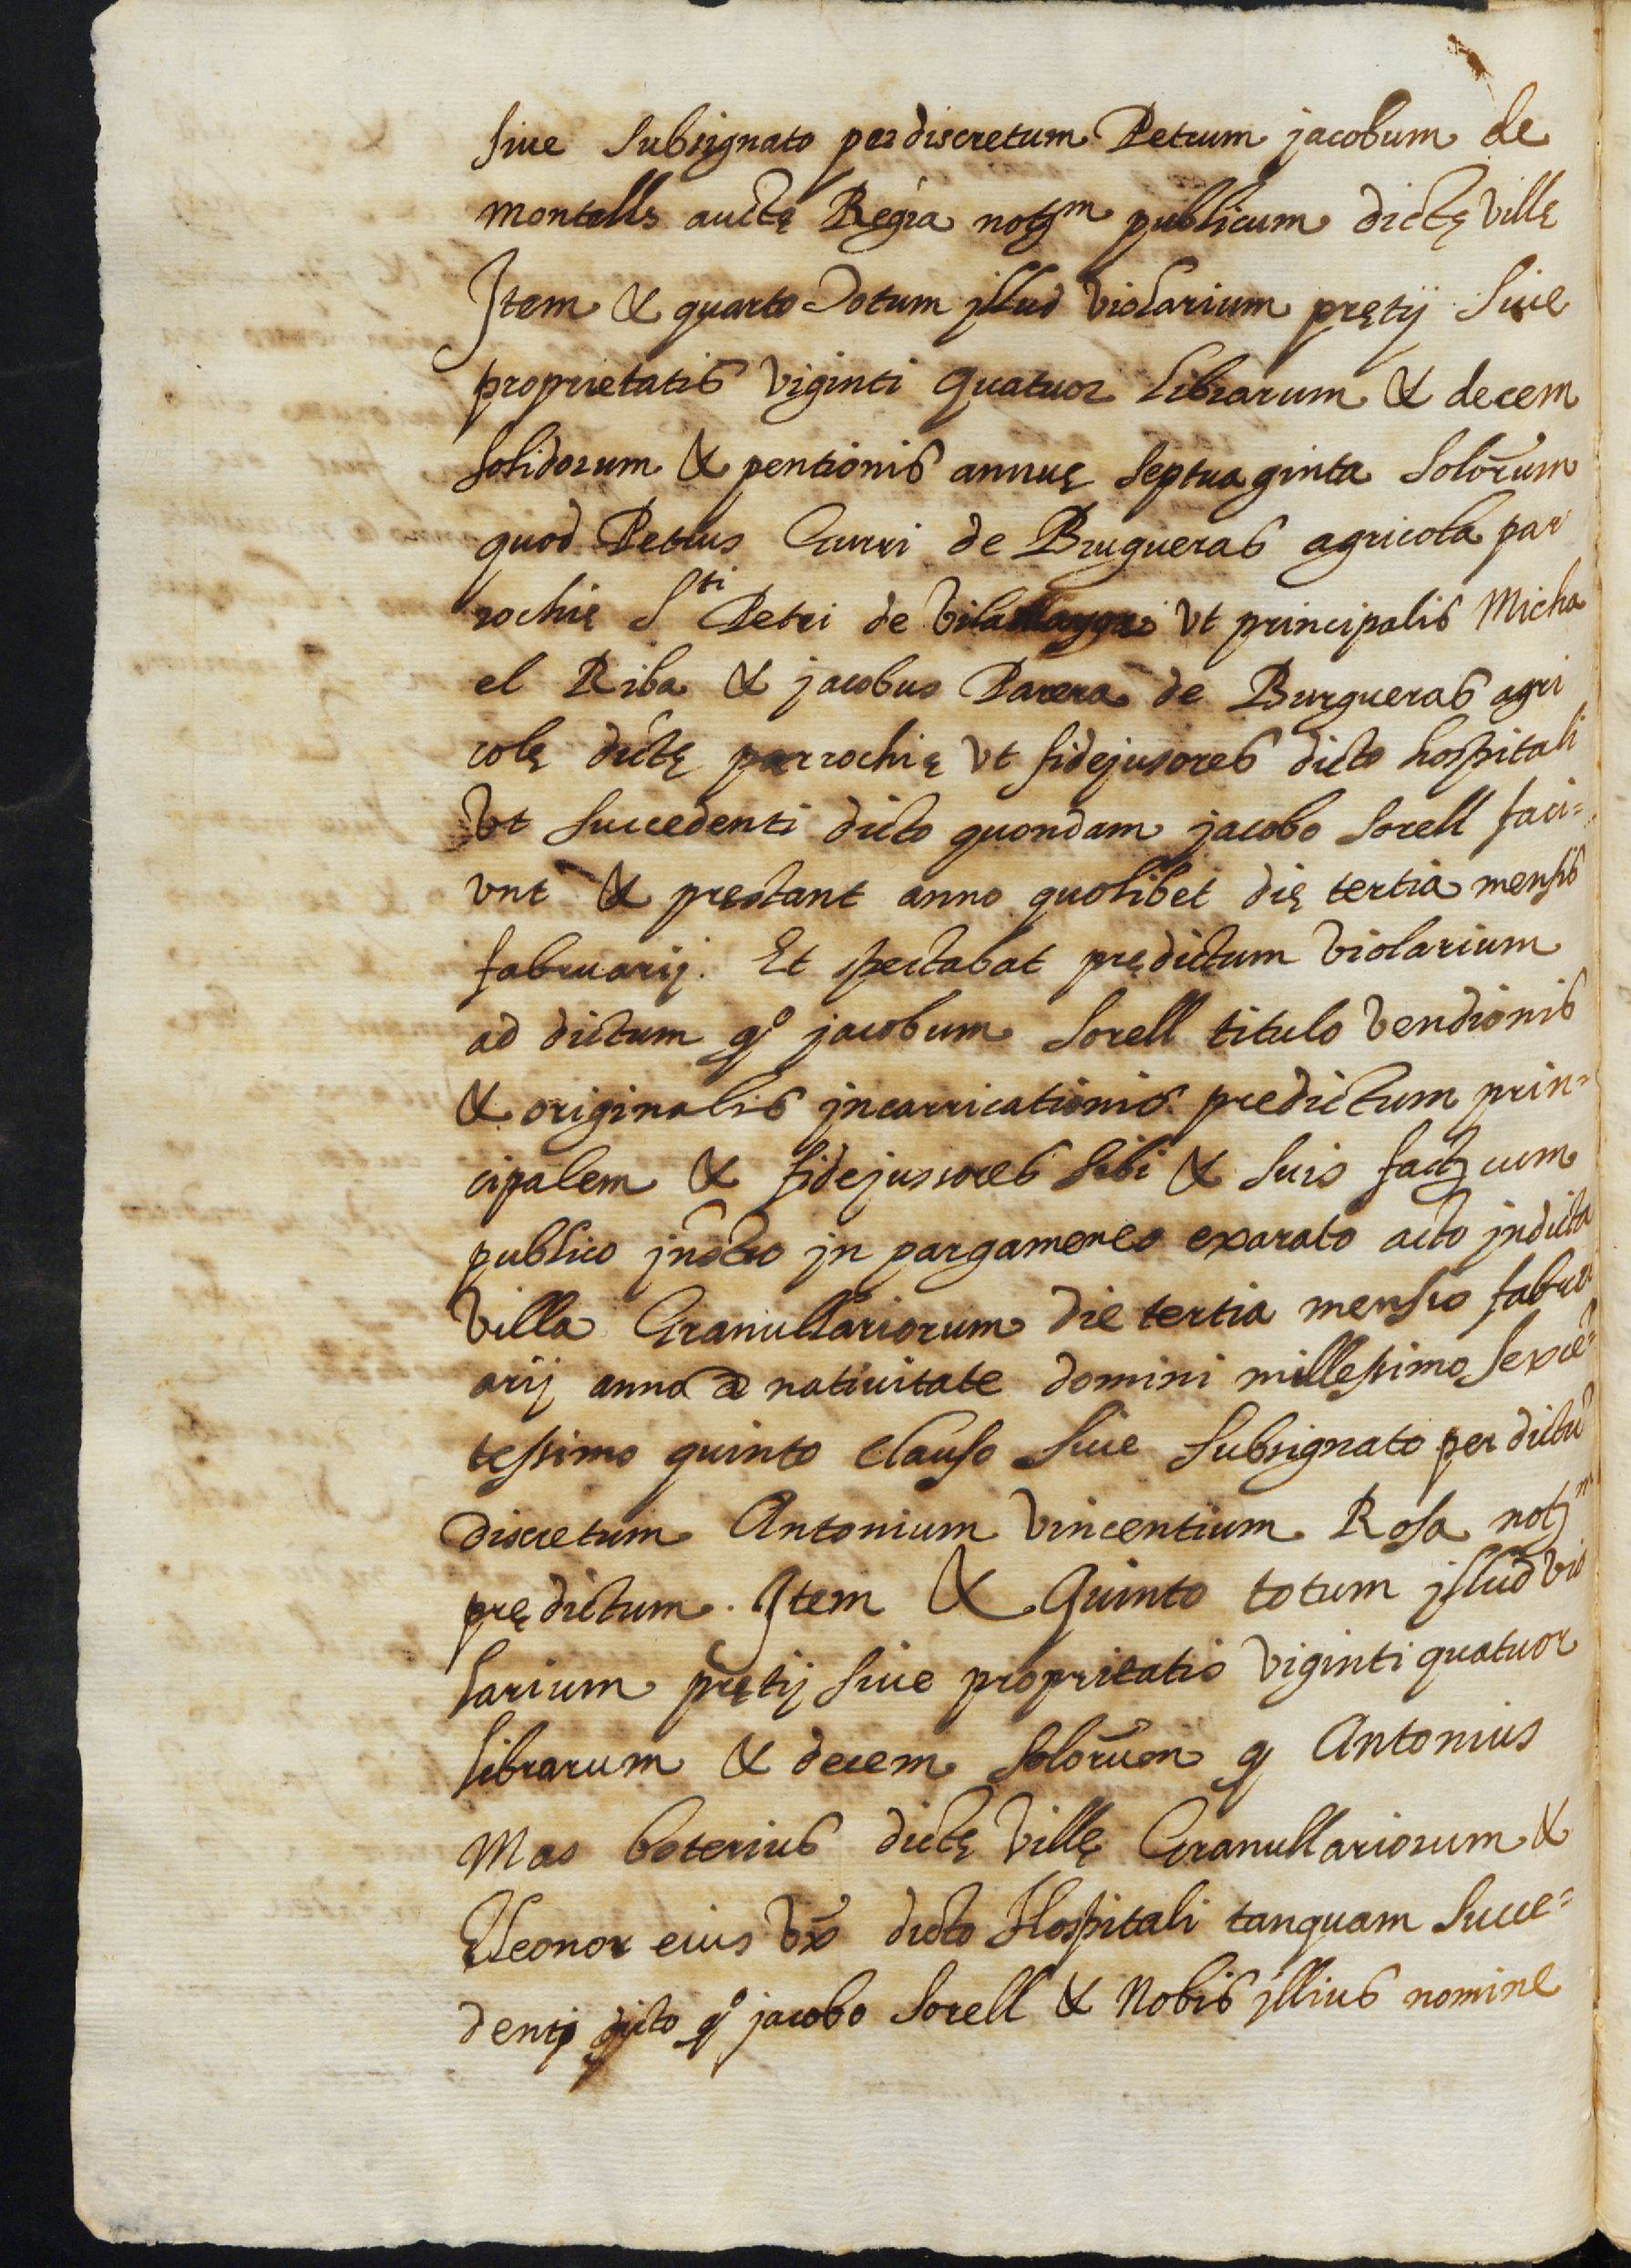 siue subsignato per discretum Petrum jacobum de
montells auctę Regia notm publicum dictę villę
Item & quarto totum jllud violarium prętij siue
proprietatis viginti quatuor librarum & decem
solidorum & pentionis annuę septuaginta solorum
quod Petrus Curri de Brugueras agricola par
rochię Sti Petri de vilamayor vt principalis Micha
el Riba & jacobus Parera de Burgueras agri
colę dictę parrochię vt fidejusores dicto hospitali
vt succedenti dicto quondam jacobo sorell faci=
unt & pręstant anno quolibet dię tertia mensis
fabruarij. Et spectabat prędictum violarium
ad dictum qo jacobum sorell titulo vendionis
& originalis jncarricationis predictum prin=
cipalem & fidejussores sibi & suis fact cum
publico jnstro jn pargameneo exarato acto jndicta
villa Granullariorum die tertia mensis fabru
arij anno a natiuitate domini millessimo sexcē=
tessimo quinto clauso siue subsignato per dictū
discretum Antonium vincentium Rosa notm
prędictum. Item & Quinto totum jllud vio
larium prętij siue proprietatis viginti quatuor
librarum & decem solorum q Antonius
Mas boterius dictę villę Granullariorum &
Eleonor eius vx dicto Hospitali tanquam succe=
denti dicto qo jacobo sorell & nobis jllius nomine